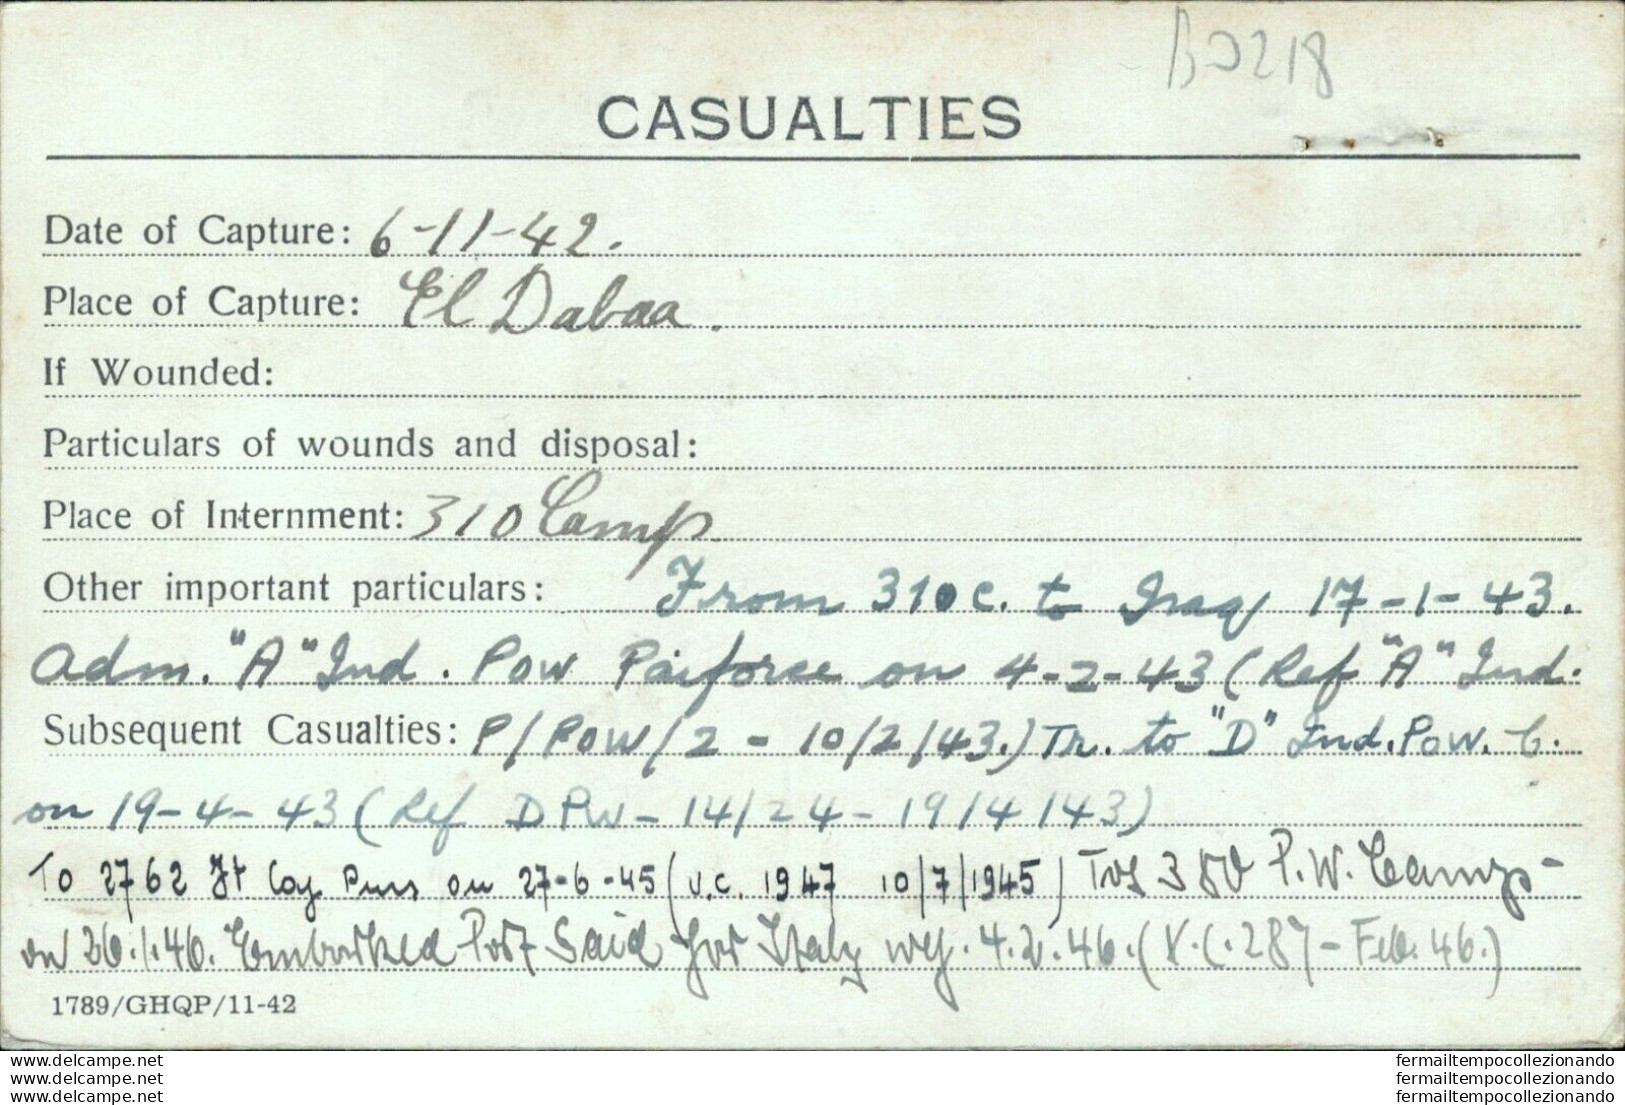 B0218
CASUALTIES
Date of Capture: 6-11-42.
Place of Capture: El Dabaa.
If Wounded:
Particulars of wounds and disposal:
Place of Internment: 310 Camp
Other important particulars: From 310 C. to Iraq 17-1-43.
adm. "A" Ind. Pow Paiforce on 4-2-43 (Ref "A" Ind.
Subsequent Casualties: P/POW/2 - 10/2/43.) Tr. to "D" Ind. Pow. C.
on 19-4-43 (Ref DPW-14/24-19/4/43)
To 2762 It Coy on 27-6-45 (V.C. 1947 10/7/1945) Tos 380 P.W. Camp -
on 26.1.46. Embarked Port Said for Italy wef. 4.2.46. (V.C. 287 - Feb. 46.)
1789/GHQP/11-42
www.delcampe.net
www.delcampe.net
www.delcampe.net
fermailtempocollezionando
fermailtempocollezionando
fermailtempocollezionando